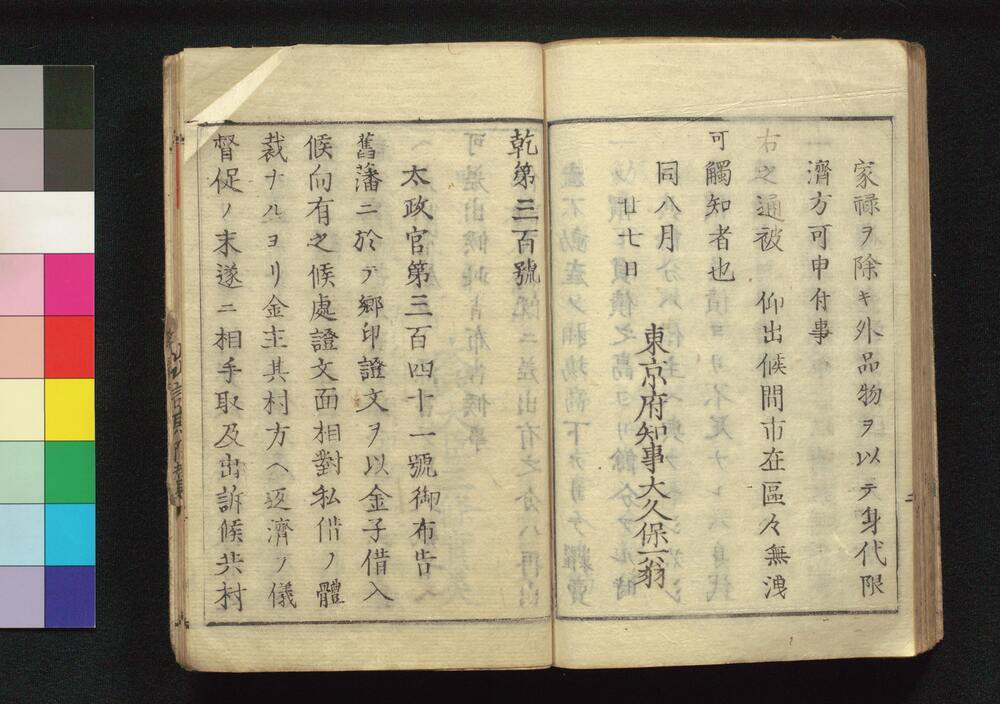 家禄ヲ除キ外品物ヲ以テ身代限
濟方可申付事
右之通被　仰出候間市在區々無洩
可觸知者也
同八月
廿七日
東京府知事大久保一翁
乾第三百號
太政官第三百四十一號御布告
舊藩ニ於テ郷印證文ヲ以金子借入
候向有之候處證文面相對私借ノ體
裁ナルヨリ金主其村方ヘ返濟ノ儀
督促ノ末遂ニ相手取及出訴候共村